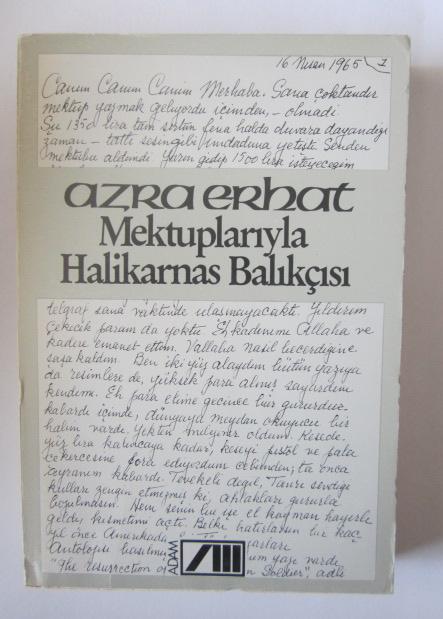 16 Nisan 1965
1
Canım Canım Canım Merhaba. Sana çoktandır
mektup yazmak geliyordu içimden, – olmadı.
Şu 1350 lira tam sırtım fena halde duvara dayandığı
zaman – tatlı sesin gibi imdadıma yetişti. Senden
mektubu aldımdı. Yarın gidip 1500 lira isteyeceğim
azra erhat
Mektuplarıyla
Halikarnas Balıkçısı
telgraf sana vaktinde ulaşmayacaktı. Yıldırım
çekecek param da yoktu. Eh kaderime Allaha ve
kadere emanet ettim. Vallaha nasıl becerdiğine
şaşa kaldım. Ben iki yüz alaydım bütün yazıya
da resimlere de, yüksek para almış sayardım
kendimi. Eh para elime geçince bir gururdur
kabardı içimde, dünyaya meydan okuyucu bir
halim vardı. Yekten milyoner oldum. Kesede
yüz lira kalıncaya kadar, keseyi pistol ve pala
çekercesine fora ediyordum cebimden; ta onca
zıyranım kabardı. Tevekkeli değil, Tanrı sevdiği
kulları zengin etmemiş ki, ahlakları gururla
bozulmasın. Hem senin bu işe el koyman hayırlı
geldi, kısmetimi açtı. Belki hatırlarsın bir kaç
yıl önce Amerikada
Antolojisi basılmış
yazı vardı
"The resurrection
Soldier", adlı
ADAM